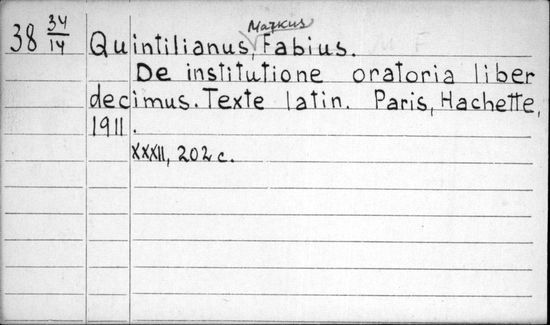 Markus
38 34/14 Quintilianus, Fabius.
De institutione oratoria liber
decimus. Texte latin. Paris, Hachette,
1911.
XXXII, 202 c.